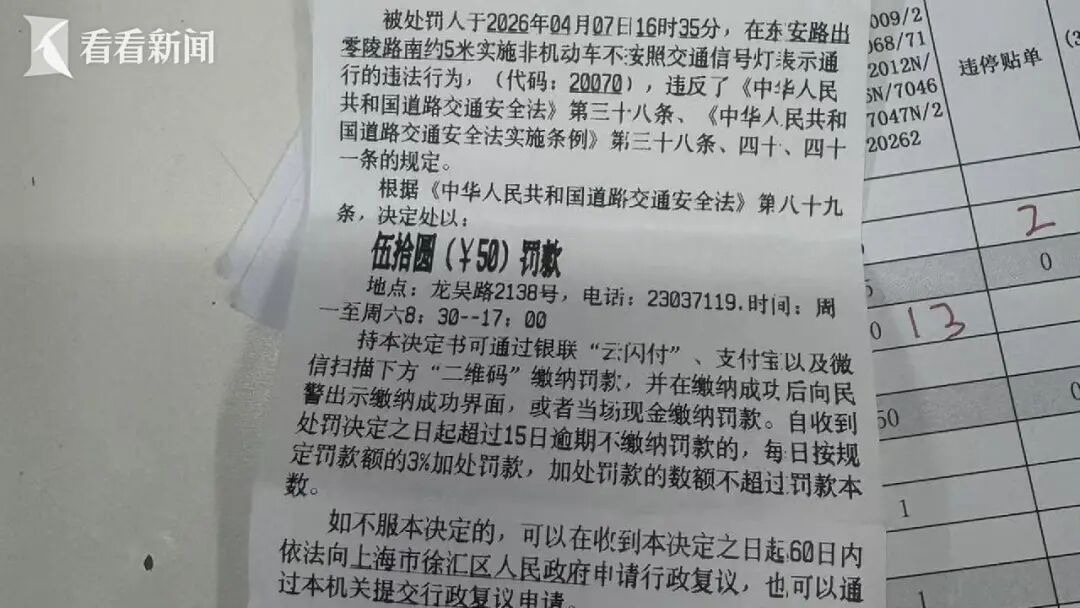 看看新闻
被处罚人于2026年04月07日16时35分，在东安路出
零陵路南约5米实施非机动车不按照交通信号灯表示通
行的违法行为，（代码：20070），违反了《中华人民
共和国道路交通安全法》第三十八条、《中华人民共和
国道路交通安全法实施条例》第三十八条、四十、四十
一条的规定。
根据《中华人民共和国道路交通安全法》第八十九
条，决定处以：
伍拾圆（￥50）罚款
地点：龙吴路2138号，电话：23037119.时间：周
一至周六8：30--17：00
持本决定书可通过银联“云闪付”、支付宝以及微
信扫描下方“二维码”缴纳罚款，并在缴纳成功后向民
警出示缴纳成功界面，或者当场现金缴纳罚款。自收到
处罚决定之日起超过15日逾期不缴纳罚款的，每日按规
定罚款额的3%加处罚款，加处罚款的数额不超过罚款本
数。
如不服本决定的，可以在收到本决定之日起60日内
依法向上海市徐汇区人民政府申请行政复议，也可以通
过本机关提交行政复议申请。
009/2
068/71
2012N/
6N/7046
7047N/2
20262
违停贴单
2
0
0 13
50
0
1
1